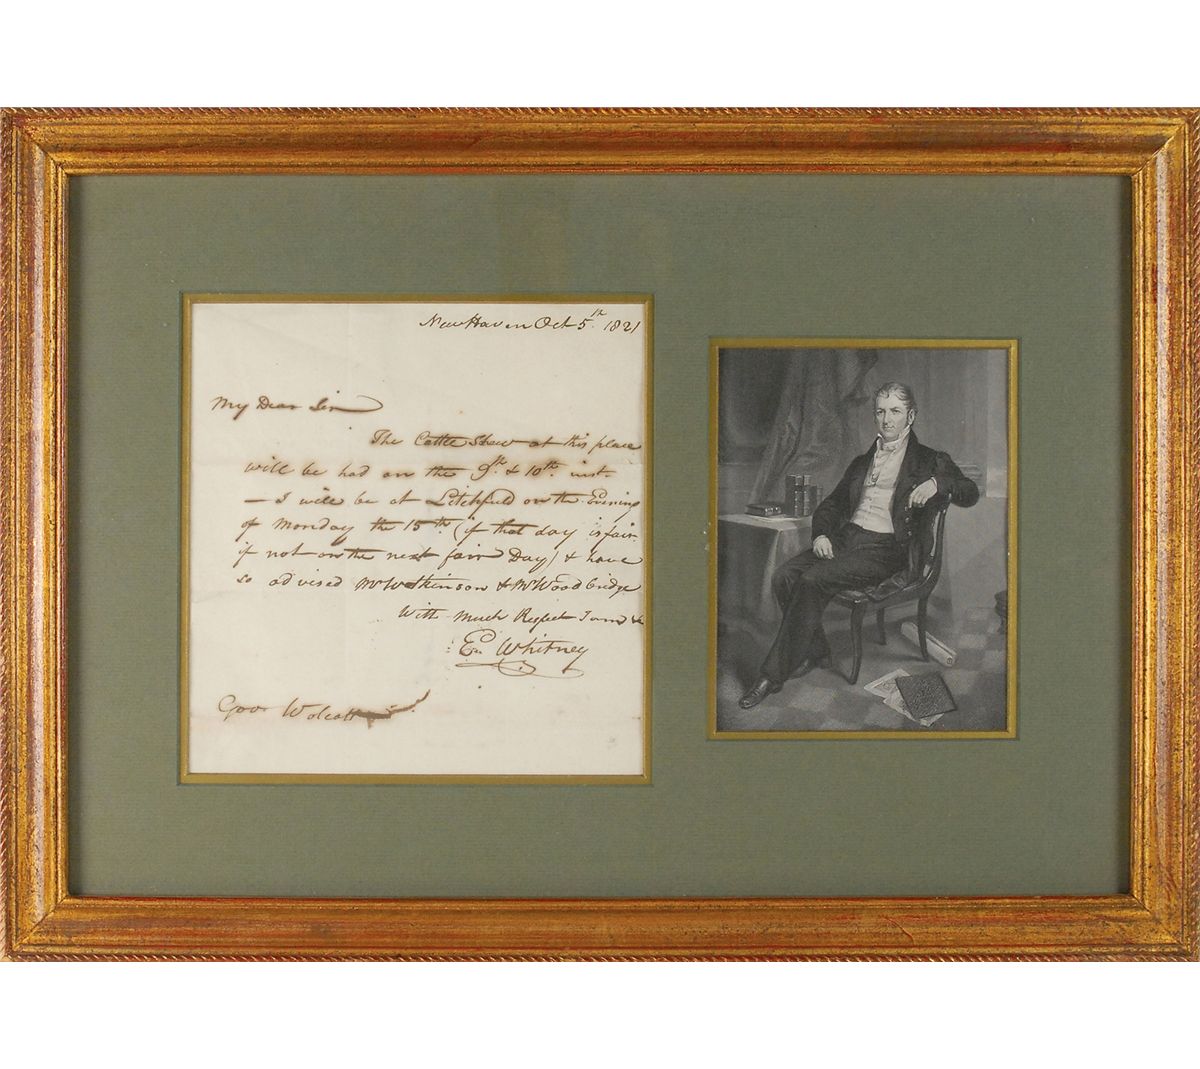 New Haven Oct 5th 1821
My Dear Sir
The Cattle Shew at this place
will be had on the 9th & 10th inst.
— I will be at Litchfield on the Evening
of Monday the 15th (if that day is fair
if not on the next fair Day) & have
so advised Mr Watkinson & Mr Woodbridge
With much Respect I am &c
Eli Whitney
Govr Wolcott